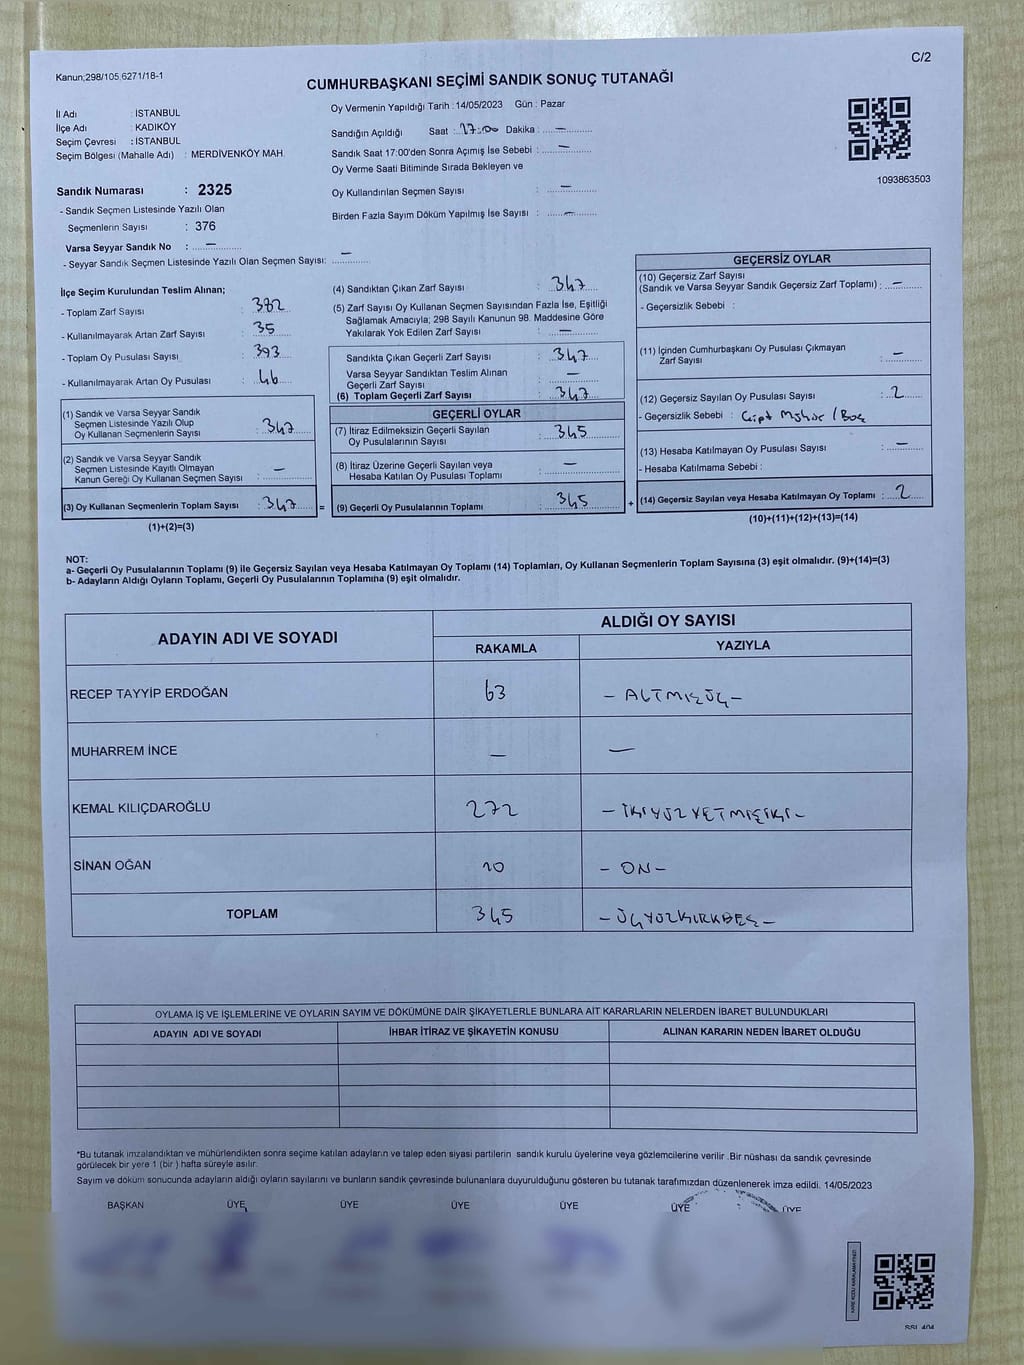 Kanun;298/105,6271/18-1
C/2
CUMHURBAŞKANI SEÇİMİ SANDIK SONUÇ TUTANAĞI
İl Adı : İSTANBUL
İlçe Adı : KADIKÖY
Seçim Çevresi : İSTANBUL
Seçim Bölgesi (Mahalle Adı) : MERDİVENKÖY MAH.
Sandık Numarası : 2325
- Sandık Seçmen Listesinde Yazılı Olan
Seçmenlerin Sayısı : 376
Varsa Seyyar Sandık No : —
- Seyyar Sandık Seçmen Listesinde Yazılı Olan Seçmen Sayısı: —
Oy Vermenin Yapıldığı Tarih : 14/05/2023 Gün : Pazar
Sandığın Açıldığı Saat : 17:00 Dakika : —
Sandık Saat 17:00'den Sonra Açımış İse Sebebi : —
Oy Verme Saati Bitiminde Sırada Bekleyen ve
Oy Kullandırılan Seçmen Sayısı : —
Birden Fazla Sayım Döküm Yapılmış İse Sayısı : —
1093863503
İlçe Seçim Kurulundan Teslim Alınan;
- Toplam Zarf Sayısı : 382
- Kullanılmayarak Artan Zarf Sayısı : 35
- Toplam Oy Pusulası Sayısı : 393
- Kullanılmayarak Artan Oy Pusulası : 46
(1) Sandık ve Varsa Seyyar Sandık
Seçmen Listesinde Yazılı Olup
Oy Kullanan Seçmenlerin Sayısı : 347
(2) Sandık ve Varsa Seyyar Sandık
Seçmen Listesinde Kayıtlı Olmayan
Kanun Gereği Oy Kullanan Seçmen Sayısı : —
(3) Oy Kullanan Seçmenlerin Toplam Sayısı : 347 =
(1)+(2)=(3)
(4) Sandıktan Çıkan Zarf Sayısı : 347
(5) Zarf Sayısı Oy Kullanan Seçmen Sayısından Fazla İse, Eşitliği
Sağlamak Amacıyla; 298 Sayılı Kanunun 98. Maddesine Göre
Yakılarak Yok Edilen Zarf Sayısı : —
Sandıkta Çıkan Geçerli Zarf Sayısı : 347
Varsa Seyyar Sandıktan Teslim Alınan
Geçerli Zarf Sayısı : —
(6) Toplam Geçerli Zarf Sayısı : 347
GEÇERLİ OYLAR
(7) İtiraz Edilmeksizin Geçerli Sayılan
Oy Pusulalarının Sayısı : 345
(8) İtiraz Üzerine Geçerli Sayılan veya
Hesaba Katılan Oy Pusulası Toplamı : —
(9) Geçerli Oy Pusulalarının Toplamı : 345 +
GEÇERSİZ OYLAR
(10) Geçersiz Zarf Sayısı
(Sandık ve Varsa Seyyar Sandık Geçersiz Zarf Toplamı) : —
- Geçersizlik Sebebi :
(11) İçinden Cumhurbaşkanı Oy Pusulası Çıkmayan
Zarf Sayısı : —
(12) Geçersiz Sayılan Oy Pusulası Sayısı : 2
- Geçersizlik Sebebi : Çift Mühür / Boş
(13) Hesaba Katılmayan Oy Pusulası Sayısı : —
- Hesaba Katılmama Sebebi :
(14) Geçersiz Sayılan veya Hesaba Katılmayan Oy Toplamı : 2
(10)+(11)+(12)+(13)=(14)
NOT:
a- Geçerli Oy Pusulalarının Toplamı (9) ile Geçersiz Sayılan veya Hesaba Katılmayan Oy Toplamı (14) Toplamları, Oy Kullanan Seçmenlerin Toplam Sayısına (3) eşit olmalıdır. (9)+(14)=(3)
b- Adayların Aldığı Oyların Toplamı, Geçerli Oy Pusulalarının Toplamına (9) eşit olmalıdır.
ADAYIN ADI VE SOYADI ALDIĞI OY SAYISI
RAKAMLA YAZIYLA
RECEP TAYYİP ERDOĞAN 63 - ALTMIŞÜÇ -
MUHARREM İNCE — —
KEMAL KILIÇDAROĞLU 272 - İKİYÜZYETMİŞİKİ -
SİNAN OĞAN 10 - ON -
TOPLAM 345 - ÜÇYÜZKIRKBEŞ -
OYLAMA İŞ VE İŞLEMLERİNE VE OYLARIN SAYIM VE DÖKÜMÜNE DAİR ŞİKAYETLERLE BUNLARA AİT KARARLARIN NELERDEN İBARET BULUNDUKLARI
ADAYIN ADI VE SOYADI İHBAR İTİRAZ VE ŞİKAYETİN KONUSU ALINAN KARARIN NEDEN İBARET OLDUĞU
*Bu tutanak imzalandıktan ve mühürlendikten sonra seçime katılan adayların ve talep eden siyasi partilerin sandık kurulu üyelerine veya gözlemcilerine verilir .Bir nüshası da sandık çevresinde
görülecek bir yere 1 (bir ) hafta süreyle asılır.
Sayım ve döküm sonucunda adayların aldığı oyların sayılarını ve bunların sandık çevresinde bulunanlara duyurulduğunu gösteren bu tutanak tarafımızdan düzenlenerek imza edildi. 14/05/2023
BAŞKAN ÜYE ÜYE ÜYE ÜYE ÜYE ÜYE
KARE KODU KARALAMAYINIZ!